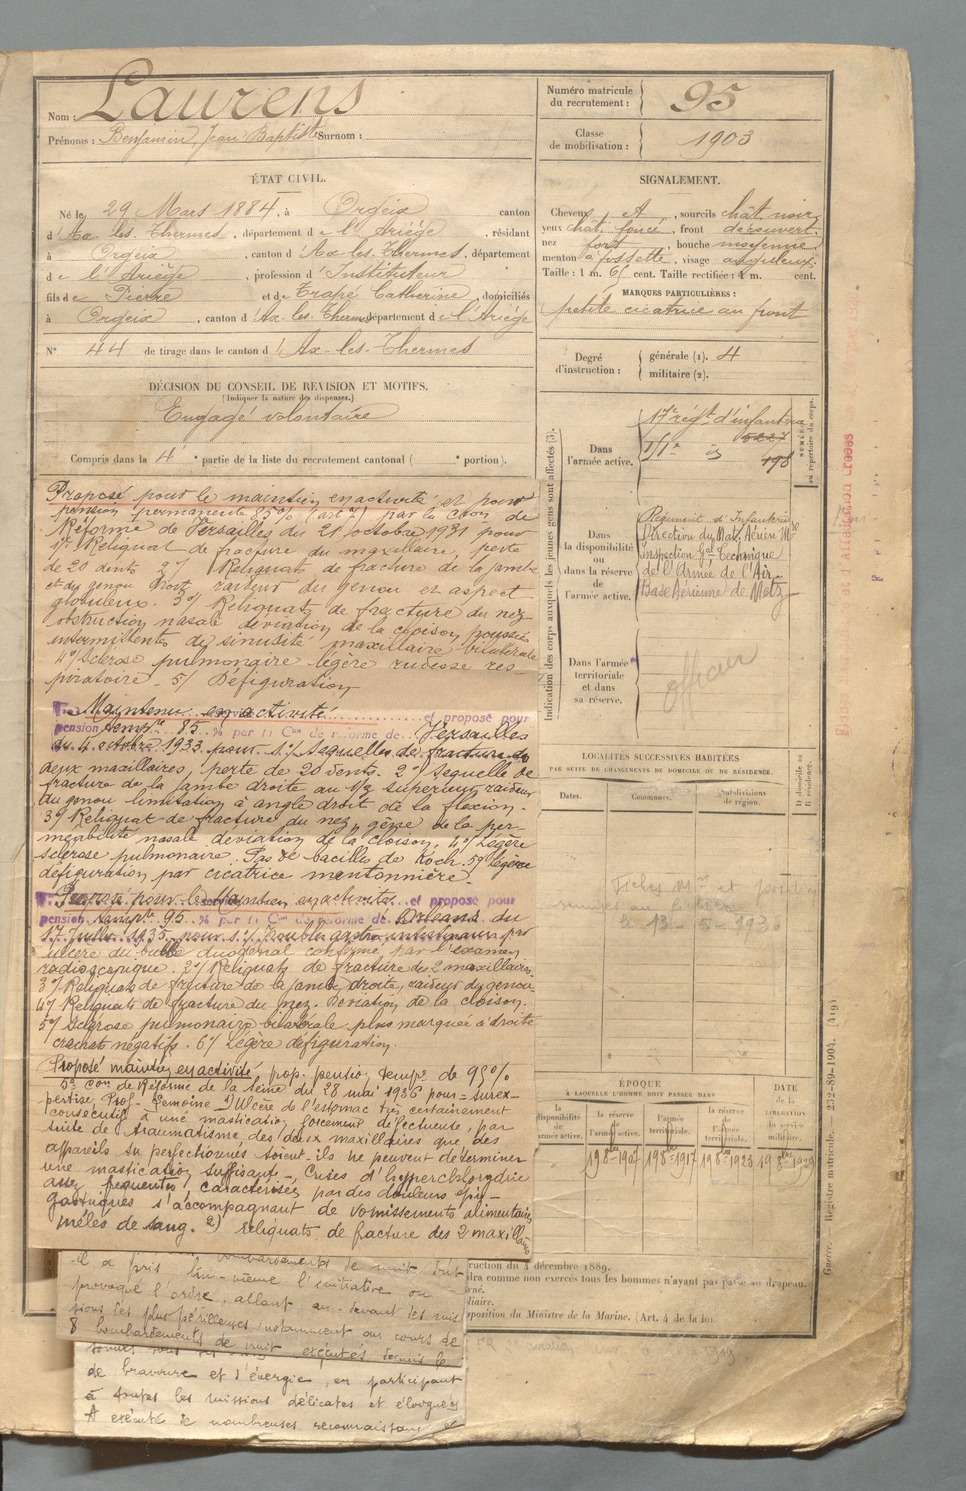 Nom : Laurens
Prénoms : Benjamin, Jean Baptiste Surnom :
Numéro matricule
du recrutement : 95
Classe
de mobilisation : 1903
ÉTAT CIVIL.
Né le 29 Mars 1884, à Orgeix canton
d'Ax-les-Thermes, département de l'Ariège, résidant
à Orgeix, canton d'Ax-les-Thermes, département
de l'Ariège, profession d'Instituteur
fils de Pierre et de Trapé Catherine, domiciliés
à Orgeix, canton d'Ax-les-Thermes département de l'Ariège
N° 44 de tirage dans le canton d'Ax-les-Thermes
SIGNALEMENT.
Cheveux et, sourcils chât. noir,
yeux chât. foncé, front découvert
nez fort, bouche moyenne
menton à fossette, visage anguleux.
Taille : 1 m. 65 cent. Taille rectifiée : 1 m. cent.
MARQUES PARTICULIÈRES :
petite cicatrice au front
Degré
d'instruction :
générale (1). 4
militaire (2).
DÉCISION DU CONSEIL DE REVISION ET MOTIFS.
(Indiquer la nature des dispenses.)
Engagé volontaire
Compris dans la 4e partie de la liste du recrutement cantonal ( e portion).
Indication des corps auxquels les jeunes gens sont affectés (3).
NUMÉRO
au répertoire du corps.
Dans
l'armée active.
17e régt d'infanterie
5227
198
Dans
la disponibilité
ou
dans la réserve
de
l'armée active.
Régiment d'Infanterie
Direction du Mat. Aérien Mre
Inspection Gal Technique
de l'Armée de l'Air
Base Aérienne de Metz
Dans l'armée
territoriale
et dans
sa réserve.
officier
Proposé pour le maintien en activité et pour
pension permanente 85% (art 7) par la Cion de
Réforme de Versailles du 21 octobre 1931 pour
1°/ Reliquat de fracture du maxillaire, perte
de 20 dents 2°/ Reliquats de fracture de la jambe
et du genou droit, raideur du genou et aspect
globuleux. 3°/ Reliquats de fracture du nez
obstruction nasale déviation de la cloison poussées
intermittentes de sinusite maxillaire bilatérale
4°/ Sclérose pulmonaire légère rudesse res-
piratoire - 5/ Défiguration
Maintenu en activité et proposé pour
pension tempre 85 % par la Con de réforme de Versailles
du 4 octobre 1933 pour 1°/ Sequelles de fracture des
deux maxillaires, perte de 20 dents. 2° Sequelle de
fracture de la jambe droite au 1/3 supérieur, raideur
du genou limitation à angle droit de la flexion.
3°/ Reliquat de fracture du nez, gêne de la per-
méabilité nasale déviation de la cloison. 4°/ Légère
sclérose pulmonaire. Pas de bacilles de Koch. 5°/ Légère
défiguration par cicatrice mentonnière.
Proposé pour le Maintien en activité et proposé pour
pension tempre 95 % par la Con de réforme de Orléans du
17 Juillet 1935 pour 1°/ Troubles gastro-intestinaux par
ulcère du bulbe duodénal confirmé par l'examen
radioscopique. 2°/ Reliquats de fracture des 2 maxillaires.
3°/ Reliquats de fracture de la jambe droite, raideur du genou
4°/ Reliquats de fracture du nez. Déviation de la cloison.
5°/ Sclérose pulmonaire bilatérale plus marquée à droite
crachats négatifs. 6°/ Légère défiguration.
Proposé maintien en activité, prop. pention tempre de 95%
5e Con de Réforme de la Seine du 28 mai 1936 pour = surex-
pertise Prof. Lemoine 1) Ulcère de l'estomac très certainement
consécutif à une mastication forcément défectueuse, par
suite de traumatisme des deux maxillaires que des
appareils si perfectionnés soient-ils ne peuvent déterminer
une mastication suffisante - Crises d'hyperchlorydrie
assez fréquentes, caractérisées par des douleurs épi-
gastriques s'accompagnant de vomissements alimentaires
mêlés de sang. 2) reliquats de fracture des 2 maxillaires
LOCALITÉS SUCCESSIVES HABITÉES
PAR SUITE DE CHANGEMENTS DE DOMICILE OU DE RÉSIDENCE.
Dates. Communes. Subdivisions
de région. D domicile ou
R résidence.
le 13-5-1936
ÉPOQUE
À LAQUELLE L'HOMME DOIT PASSER DANS
DATE
de la
LIBÉRATION
du service
militaire.
la
disponibilité
de
l'armée active.
la réserve
de
l'armée active.
l'armée
territoriale.
la réserve
de
l'armée
territoriale.
19 8bre 1907 19 8bre 1917 19 8bre 1923 19 8bre 1929
ruction du 4 décembre 1889.
dra comme non exercés tous les hommes n'ayant pas passé au drapeau.
rné.
liaire.
sposition du Ministre de la Marine. (Art. 4 de la loi
il a pris lui-même l'initiative ou
provoqué l'ordre, allant au-devant des mis
sions les plus périlleuses, notamment au cours de
8 bombardements de nuit exécutés depuis le
de bravoure et d'énergie, en participant
à toutes les missions délicates et éloignées
A exécuté de nombreuses reconnaissances
Guerre. — Registre matricule. — 232-89-1904. (419)